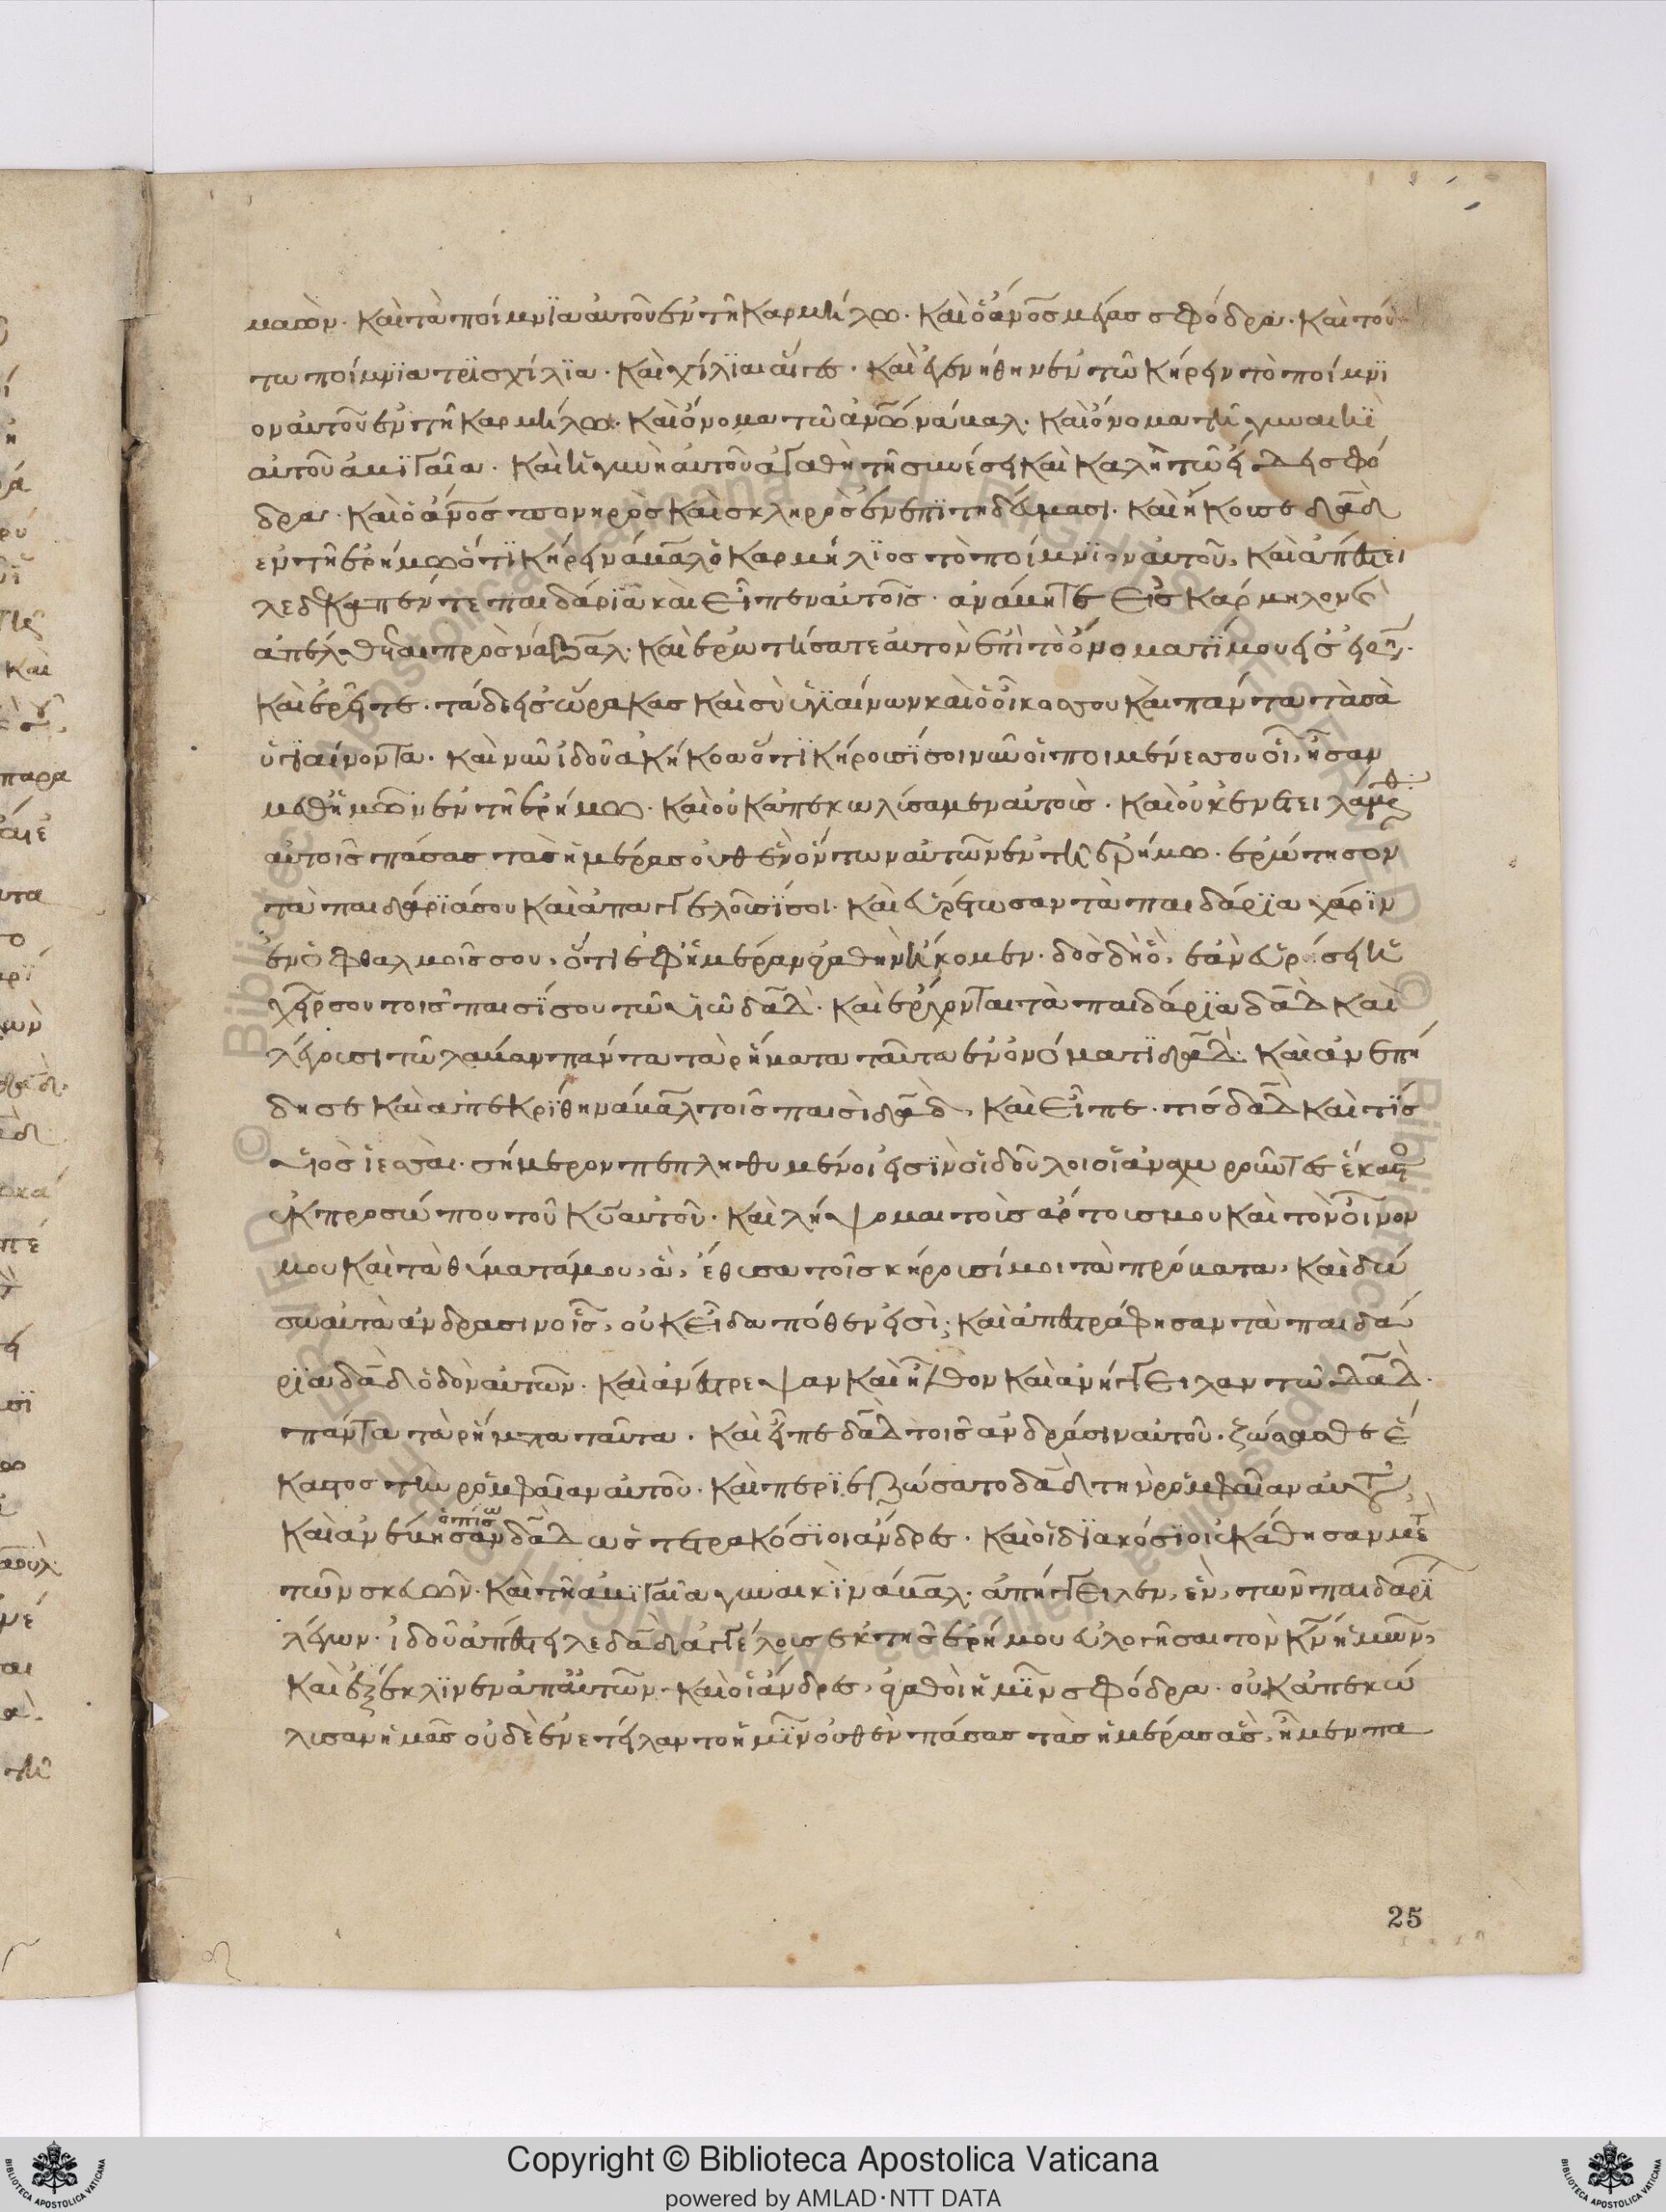 μαών. Καὶ τὰ ποίμνϊα αὐτοῦ ἐν τῆ Καρμήλω. Καὶ ὁ ἄνο̅σ μέγασ σφόδρα. Καὶ τού
τω ποίμνϊα τρϊσχίλϊα. Καὶ χίλϊαι αἶγεσ. Καὶ ἐγενήθη ἐν τῶ Κήρειν τὸ ποίμνϊ
ον αὐτοῦ ἐν τῆ Καρμήλω. Καὶ ὄνομα τῶ ἀνω̅ νάβαλ. Καὶ ὄνομα τῆ γυναικὶ
αὐτοῦ ἀβϊγαῖα. Καὶ ἡ γυνὴ αὐτοῦ ἀγαθὴ τῆ συνέσει Καὶ Καλὴ τῶ εἴδει σφό
δρα. Καὶ ὁ ἄνο̅σ πονηρὸσ Καὶ σκληρὸσ ἐν ἐπϊτηδεύμασι. Καὶ ἤκουσε δα̅δ
ἐν τῆ ἐρήμω ὅτϊ Κήρει νάβαλ ὁ Καρμήλϊοσ τὸ ποίμνϊον αὐτοῦ. Καὶ ἀπέστει
λε δα̅δ πέντε παιδάρϊα καὶ εἶπεν αὐτοῖσ. ἀνάβητε εἰσ Κάρμηλον
ἀπέλθαται πρὸσ νάβαλ. Καὶ ἐρωτήσατε αὐτὸν ἐπὶ τὸ ὀνόματϊ μου εἰσ εἰρήν.
Καὶ ἐρεῖτε. τάδε εἰσ ὥρακασ Καὶ σὺ ὑγϊαίνων καὶ ὁ οἶκοσ σου Καὶ πάντα τὰ σὰ
ὑγϊαίνοντα. Καὶ νῦν ἰδοῦ ἀκήκοα ὅτϊ Κήρουσϊ σοι νῦν οἱ ποιμένεσ σου οἳ, ἦσαν
μεθ ἡμῶν ἐν τῆ ἐρήμω. Καὶ οὐκ ἀπεκωλύσαμεν αὐτοὺσ. Καὶ οὐκ ἐντειλάμεθ
αὐτοῖσ πάσασ τὰσ ἡμέρασ οὐθὲν ὄντων αὐτῶν ἐν τῆ ἐρήμω. ἐρώτησον
τὰ παιδάρϊά σου Καὶ ἀπαγγελοῦσϊ σοι. Καὶ εὑρέτωσαν τὰ παιδάρϊα χάρϊν
ἐν ὀφθαλμοῖσ σου. ὅτι ἐφ ἡμέραν ἀγαθὴν ἥκομεν. δὸσ δὴ ὃ, ἐὰν εὕρησει ἡ
χεὶρ σου τοῖσ παισϊ σου τῶ υἱῶ δα̅δ. Καὶ ἔρχονται τὰ παιδάρϊα δα̅δ Καὶ
λέγουσι τῶ νάβαλ πάντα τὰ ρήματα ταῦτα ἐν ὀνόματϊ δα̅δ. Καὶ ἀνεπή
δησε Καὶ ἀπεκρϊθη νάβαλ τοῖσ παισὶ δα̅δ. Καὶ εἶπε. τίσ δα̅δ Καὶ τίσ
υἱὸσ ἰεσσαι. σήμερον πεπληθυμένοι εἰσϊν οἱ δοῦλοι οἱ ἀναχωροῦντεσ ἕκαστο
ἐκ προσώπου τοῦ κυ̅ αὐτοῦ. Καὶ λήψομαι τοὺσ ἄρτουσ μου Καὶ τὸν οἶνον
μου Καὶ τὰ θύματά μου, ἃ, ἔθυσα τοῖσ κήρουσί μοι τὰ πρόβατα. Καὶ δώ
σω αὐτὰ ἀνδράσιν οἷσ, οὐκ εἶδα πόθεν εἰσὶ. Καὶ ἀπεστράφησαν τὰ παιδά
ρϊα δα̅δ ὁδὸν αὐτῶν. Καὶ ἀνέστρεψαν Καὶ ἦλθον Καὶ ἀνήγγειλαν τῶ δα̅δ.
πάντα τὰ ρήματα ταῦτα. Καὶ εἶπε δα̅δ τοῖσ ἀνδράσιν αὐτοῦ. ζώσασθε ἕ
καστοσ τὴν ρομφαίαν αὐτοῦ. Καὶ περϊεζώσατο δα̅δ τὴν ρομφαίαν αὐτοῦ
Καὶ ἀνέβησαν ὀπίσω δα̅δ ὡσ τετρακόσϊοι ἄνδρεσ. Καὶ οἱ δϊακόσϊοι ἐκάθησαν μετὰ
τῶν σκευῶν. Καὶ τῆ ἀβϊγαῖα γυναικὶ νάβαλ. ἀπήγγειλεν, ἓν, τῶν παιδαρί
λέγων. ἰδοῦ ἀπέστειλε δα̅δ ἀγγέλουσ ἐκ τῆσ ἐρήμου εὐλογῆσαι τὸν κν̅ ἡμῶν,
Καὶ ἐξέκλϊνεν ἀπ αὐτῶν. Καὶ οἱ ἄνδρεσ, ἀγαθοὶ ἡμῖν σφόδρα. οὐκ ἀπεκώ
λυσαν ἡμᾶσ οὐδὲ ἐνετείλαντο ἡμῖν οὐθὲν πάσασ τὰσ ἡμέρασ ἃσ, ἦμεν πα
25
Copyright © Biblioteca Apostolica Vaticana
powered by AMLAD·NTT DATA